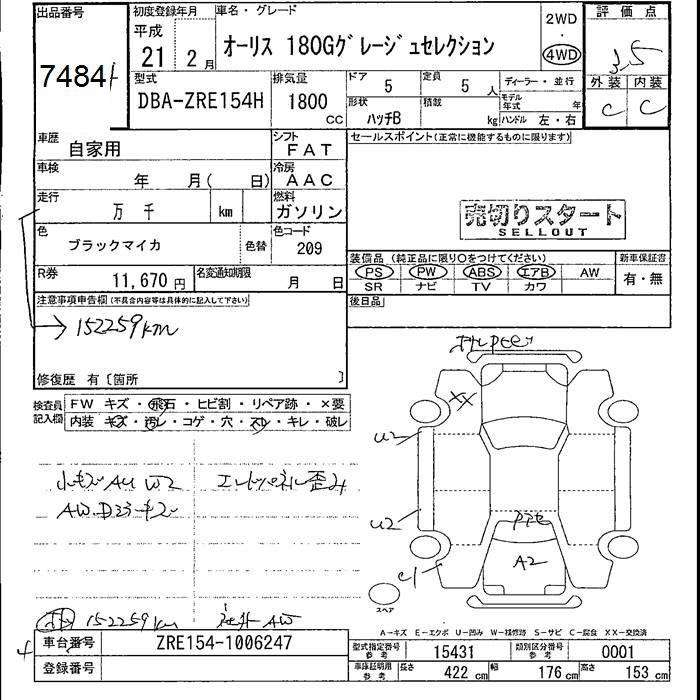 出品番号
7484
初度登録年月
平成
21 2 月
車名・グレード
オーリス 180Gグレージュセレクション
2WD
・
4WD
評価点
3.5
外装 内装
C C
型式
DBA-ZRE154H
排気量
1800 cc
ドア
5
定員
5 人
ディーラー・並行
形状
ハッチB
積載
kg
モデル年式 年
ハンドル 左・右
車歴
自家用
シフト
FAT
車検
年 月( 日)
冷房
AAC
走行
万 千 km
燃料
ガソリン
色
ブラックマイカ
色替
色コード
209
R券
11,670 円
名変通知期限
月 日
セールスポイント(正常に機能するものに限ります)
売切りスタート
SELLOUT
装備品(純正品に限り○をつけてください)
新車保証書
PS PW ABS エアB AW
SR ナビ TV カワ
有・無
後日品
注意事項申告欄(不具合内容等は具体的に記入して下さい)
→152259km
修復歴 有〔箇所 〕
検査員記入欄
FW キズ・飛石・ヒビ割・リペア跡・×要
内装 キズ・汚レ・コゲ・穴・スレ・キレ・破レ
小キズAU W2
AW.D
152259km
社外AW
XX
U2
U2
C1
A2
スペア
A-キズ E-エクボ U-凹み W-補修跡 S-サビ C-腐食 XX-交換済
車台番号
ZRE154-1006247
登録番号
型式指定番号
参考
15431
類別区分番号
参考
0001
車庫証明用
参考
長さ 422 cm 幅 176 cm 高さ 153 cm